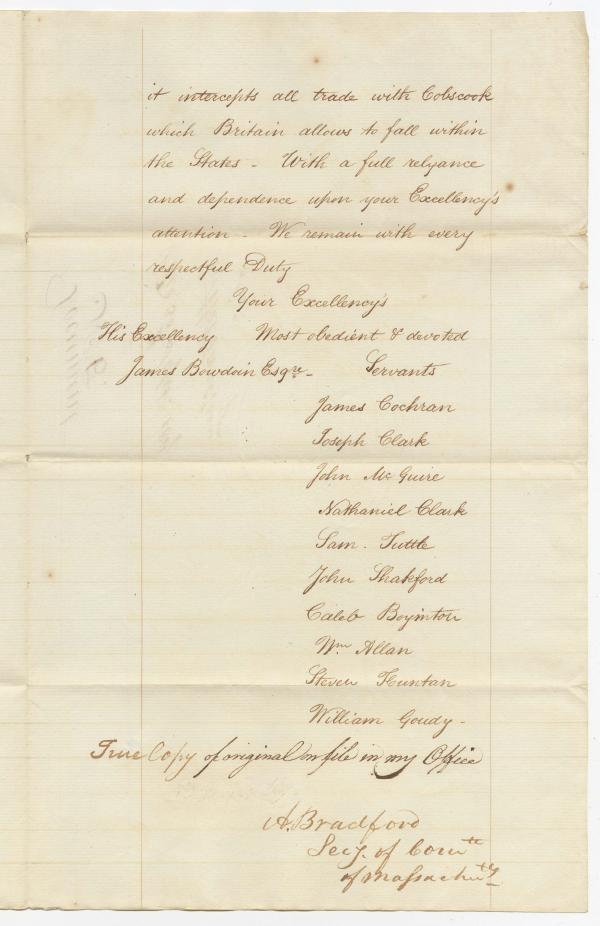 it intercepts all trade with Cobscook
which Britain allows to fall within
the States - With a full relyance
and dependence upon your Excellency's
attention - We remain with every
respectful Duty
Your Excellency's
His Excellency Most obedient & devoted
James Bowdoin Esqre - Servants
James Cochran
Joseph Clark
John Mc Guire
Nathaniel Clark
Sam. Tuttle
John Shakford
Caleb Boyinton
Wm Allan
Steven Fountan
William Goudy -
True Copy of original on file in my Office
A. Bradford
Secy. of Com
of Massachu